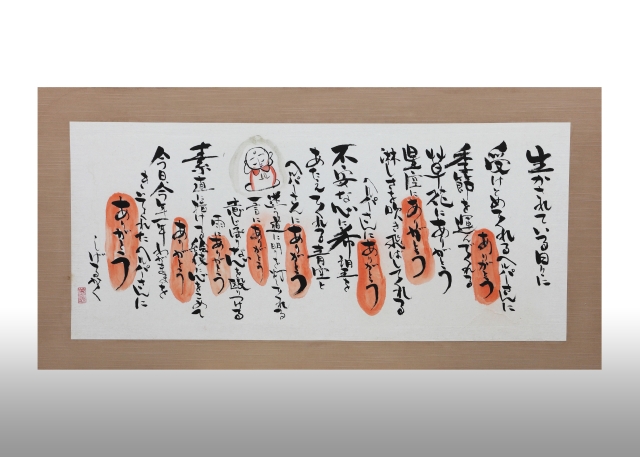 生かされている日々に
受けとめてくれるヘルパーさんに
ありがとう
季節を運んでくれる
草花にありがとう
星座にありがとう
淋しさを吹き飛ばしてくれる
ヘルパーさんにありがとう
不安な心に希望を
あたえてくれる青空と
ヘルパーさんにありがとう
迷う道に明り灯してくれる
一言にありがとう
雨にありがとう
素直に
ありがとう
今日今年一年わがままを
きいてくれたヘルパーさんに
ありがとう
しげるかく